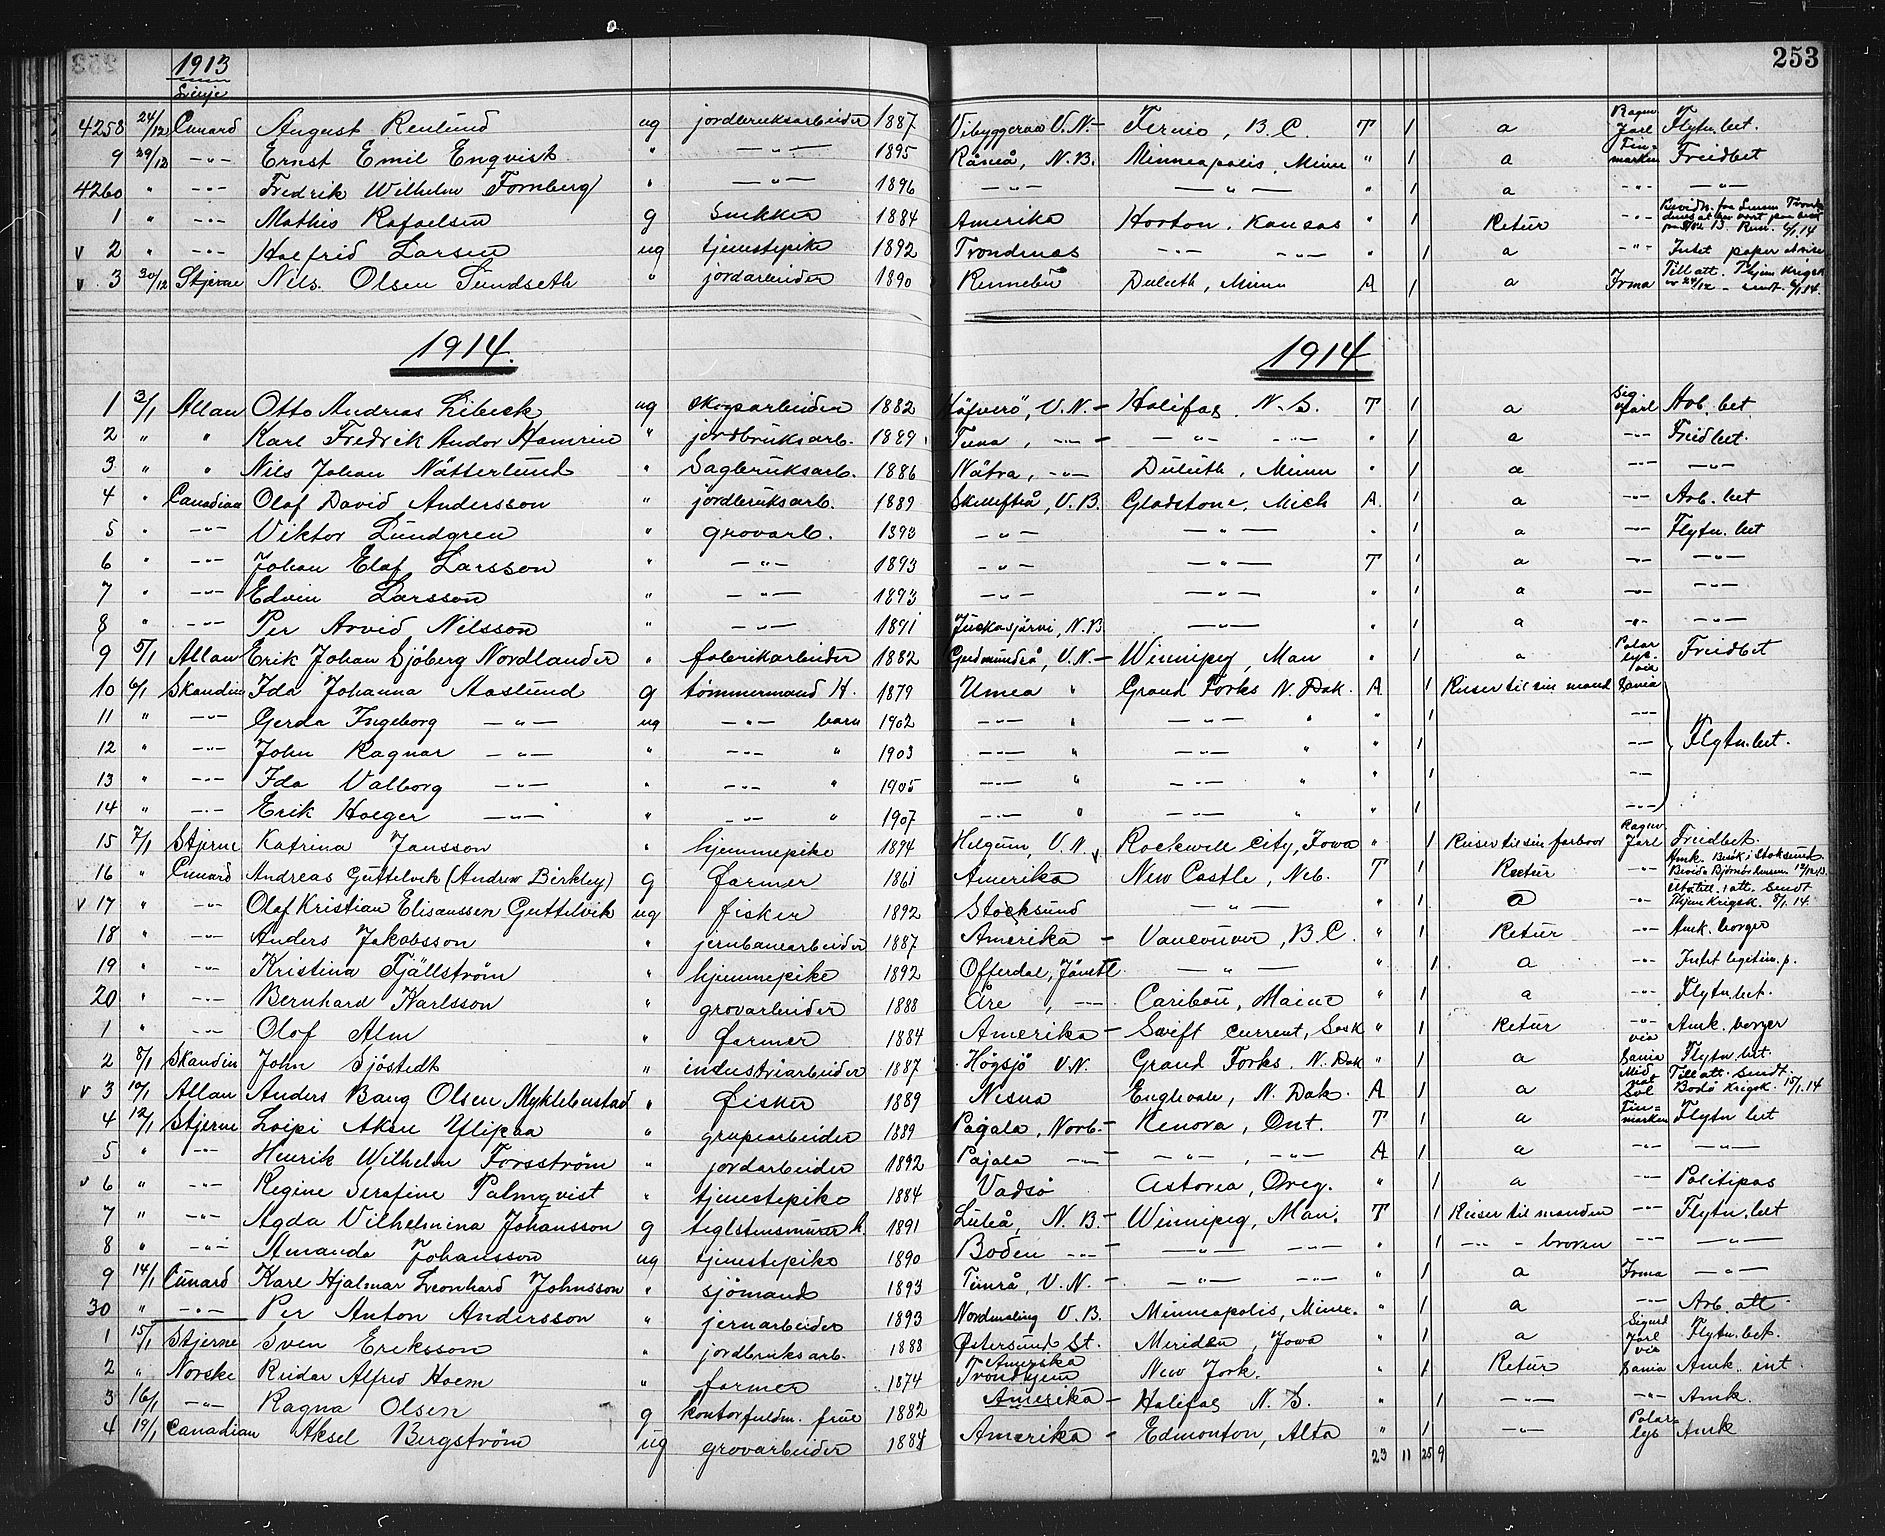 1913 253
Linje
4258 24/12 Cunard August Renlund ug jordbruksarbeider 1887 Vibyggeraa V.N. – Fernie, B.C. T 1 a Ragn. Jarl Flytn. bet.
9 29/12 –"– Ernst Emil Enqvist " –"– 1895 Råneå, N.B. Minneapolis, Minn " 1 a Finmarken Freidbet
4260 " –"– Fredrik Wilhelm Fornberg " –"– 1896 –"– –"– " 1 a –"– –"–
1 " –"– Mathis Rafaelsen g Snekker 1884 Amerika Horton, Kansas " 1 Retur –"–
v 2 " –"– Halfrid Larsen ug tjenestepike 1892 Trondenes –"– –"– " 1 a –"– Intet papir
v 3 30/12 Stjerne Nils Olsen Sundseth " jordarbeider 1890 Rennebu Duluth, Minn A 1 a Irma Till att. Thjem Krigsk
1914. 1914
1 3/1 Allan Otto Andreas Libeck ug skogsarbeider 1882 Häfverö, V.N. – Halifas, N.S. T 1 a Sig Jarl Arb. bet.
2 " " Karl Fredrik Andor Hamrin " jordbruksarb. 1889 Tuna, –"– – –"– –"– " 1 a –"– Freidbet.
3 " " Nils Johan Nätterlund " Sagbruksarb. 1886 Nätra, –"– Duluth, Minn " 1 a –"– –"–
4 " Canadian Olof David Andersson " jordbruksarb. 1889 Skellefteå, V.B. Gladstone, Mich A. 1 a –"– Arb. bet
5 " –"– Viktor Lundgren " grovarb. 1893 –"– –"– " 1 a –"– Flytn. bet
6 " –"– Johan Elof Larsson " –"– 1893 –"– –"– T 1 a –"– –"–
7 " –"– Edvin Larsson " –"– 1893 –"– –"– " 1 a –"– –"–
8 " –"– Per Arvid Nilsson " –"– 1891 Juckasjärvi, N.B –"– " 1 a –"– –"–
9 5/1 Allan Erik Johan Sjöberg Nordlander " fabrikarbeider 1882 Gudmundrå, V.N. – Winnipeg, Man " 1 a Polarlys Freidbet
10 6/1 Skandin Ida Johanna Aaslund g tømmermand H. 1879 Umea " Grand Forks N. Dak. A 1 Reiser til sin mand via Dania
11 " –"– Gerda Ingeborg –"– ug –"– barn 1902 –"– " –"– " " 1 –"–
12 " –"– John Ragnar –"– " –"– " 1903 –"– " –"– " " 1 –"– Flytn. bet.
13 " –"– Ida Valborg –"– " –"– " 1905 –"– " –"– " " 1 –"–
14 " –"– Erik Holger –"– " –"– " 1907 –"– " –"– " 1 –"–
15 7/1 Stjerne Katrina Jansson " hjemmepike 1894 Helgum, V.N. Rockwell City, Iowa " 1 Reiser til sin farbror Ragnv Jarl Freidbet.
16 " Cunard Andreas Guttelvik (Andrew Birkley) g farmer 1861 Amerika New Castle, Neb. T 1 Retur –"– Amk. Besøk i Stoksund
v 17 " –"– Olaf Kristian Elisæussen Guttelvik ug fisker 1892 Stocksund –"– " 1 a –"– Utsatt. att. Sendt Thjem Krigsk. 8/1.14.
18 " –"– Anders Jakobsson " jernbanearbeider 1887 Amerika – Vancouver, B.C. " 1 Retur –"– Amk. borger
19 " –"– Kristina Fjällström " hjemmepike 1892 Offerdal, Jämtl. –"– " 1 a –"– Intet legitim. p.
20 " –"– Bernhard Karlsson " grovarbeider 1888 Åre, –"– Caribou, Maine " 1 a –"– Flytn. bet.
1 " –"– Olof Alm " farmer 1884 Amerika – Swift Current, Sask " 1 Retur –"– Amk. borger
2 8/1 Skandin John Sjöstedt " industriarbeider 1887 Högsjö V.N. Grand Forks, N. Dak " 1 a via Dania Flytn. bet.
v 3 10/1 Allan Anders Bang Olsen Myklebustad " fisker 1889 Nesna Englevale, N. Dak. A 1 a Midnat sol Till att. Sendt. Bodø Krigsk. 15/1.14
4 12/1 Stjerne Loipi Aksu Ylipaa " grupearbeider 1889 Pajala, Norb. – Kenora, Ont. T 1 a Finmarken Flytn bet
5 " –"– Henrik Wilhelm Forsström " jordarbeider 1892 Pajala –"– –"–, –"– A 1 a –"– –"–
v 6 " –"– Regine Serafine Palmqvist " tjenestepike 1884 Vadsø Astoria, Oreg. " 1 a –"– Politipas
7 " –"– Agda Vilhelmina Johansson g teglstensmurer h. 1891 Luleå, N.B. – Winnipeg, Man. T 1 Reiser til manden –"– Flytn. bet
8 " –"– Amanda Johansson ug tjenestepike 1890 Boden –"– –"– –"– " 1 –"– – broren –"– –"–
9 14/1 Cunard Karl Hjalmar Leonhard Johnsson " sjömand 1893 Timrå, V.N. – –"– –"– " 1 a Irma –"–
30 " –"– Per Anton Andersson " jernarbeider 1893 Nordmaling V.B. Minneapolis, Minn. " 1 a –"– Arb. att
1 15/1 Stjerne Sven Eriksson " jordbruksarb. 1888 Østersund St. Meriden, Iowa " 1 a Sigurd Jarl Flytn. bet.
2 " Norske Reidar Alfred Hoem " farmer 1874 Amerika Trondhjem New York. " 1 Retur via Dania Amk. int
3 16/1 –"– Ragna Olsen g kontorfuldm. frue 1882 Amerika – Halifas N.S. " 1 –"– –"– Amk.
4 19/1 Canadian Aksel Bergström ug grovarbeider 1884 Amerika – Edmonton, Alta " 1 –"– Polarlys Amk
23 11 25 9